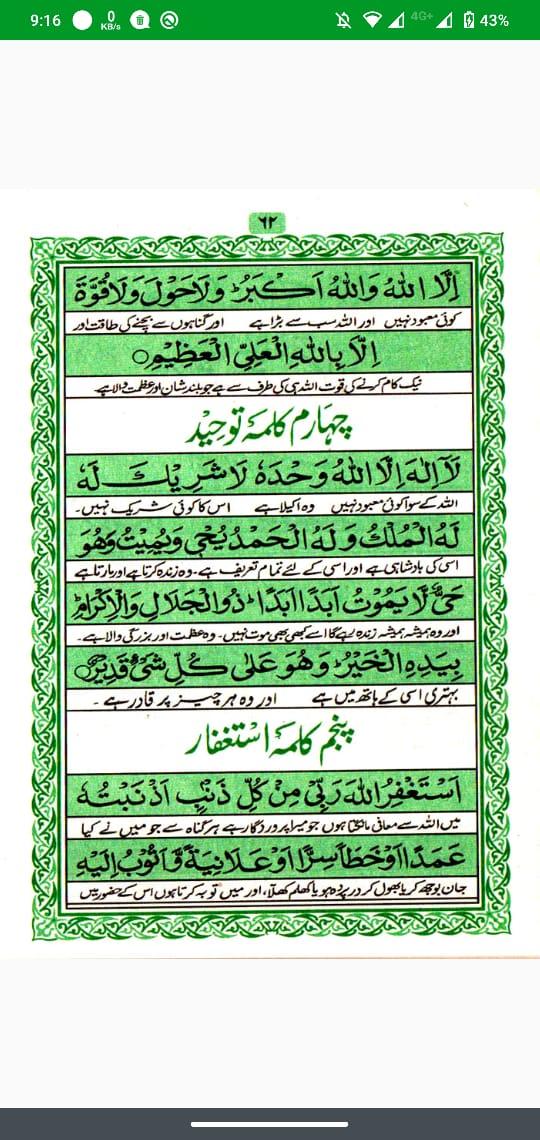 9:16 0 KB/s 4G+ 43%
٦٢
اِلَّا اللهُ وَاللهُ اَكْبَرُ وَلَا حَوْلَ وَلَا قُوَّةَ
کوئی معبود نہیں اور اللہ سب سے بڑا ہے اور گناہوں سے بچنے کی طاقت اور
اِلَّا بِاللهِ الْعَلِيِّ الْعَظِيْمِ
نیک کام کرنے کی قوت اللہ ہی کی طرف سے ہے جو بلند شان اور عظمت والا ہے
چہارم کلمۂ توحید
لَآ اِلٰهَ اِلَّا اللهُ وَحْدَهٗ لَا شَرِيْكَ لَهٗ
اللہ کے سوا کوئی معبود نہیں وہ اکیلا ہے اس کا کوئی شریک نہیں۔
لَهُ الْمُلْكُ وَلَهُ الْحَمْدُ يُحْيٖ وَيُمِيْتُ وَهُوَ
اسی کی بادشاہی ہے اور اسی کے لئے تمام تعریف ہے۔ وہ زندہ کرتا ہے اور مارتا ہے
حَيٌّ لَّا يَمُوْتُ اَبَدًا اَبَدًا ذُو الْجَلَالِ وَالْاِكْرَامِ
اور وہ ہمیشہ ہمیشہ زندہ رہے گا اسے کبھی بھی موت نہیں۔ وہ عظمت اور بزرگی والا ہے۔
بِيَدِهِ الْخَيْرُ وَهُوَ عَلٰى كُلِّ شَيْءٍ قَدِيْرٌ
بہتری اسی کے ہاتھ میں ہے اور وہ ہر چیز پر قادر ہے۔
پنجم کلمۂ استغفار
اَسْتَغْفِرُ اللهَ رَبِّيْ مِنْ كُلِّ ذَنْبٍ اَذْنَبْتُهٗ
میں اللہ سے معافی مانگتا ہوں جو میرا پروردگار ہے ہر گناہ سے جو میں نے کیا
عَمَدًا اَوْ خَطَأً سِرًّا اَوْ عَلَانِيَةً وَّاَتُوْبُ اِلَيْهِ
جان بوجھ کر یا بھول کر در پردہ ہو یا کھلم کھلا، اور میں توبہ کرتا ہوں اس کے حضور میں